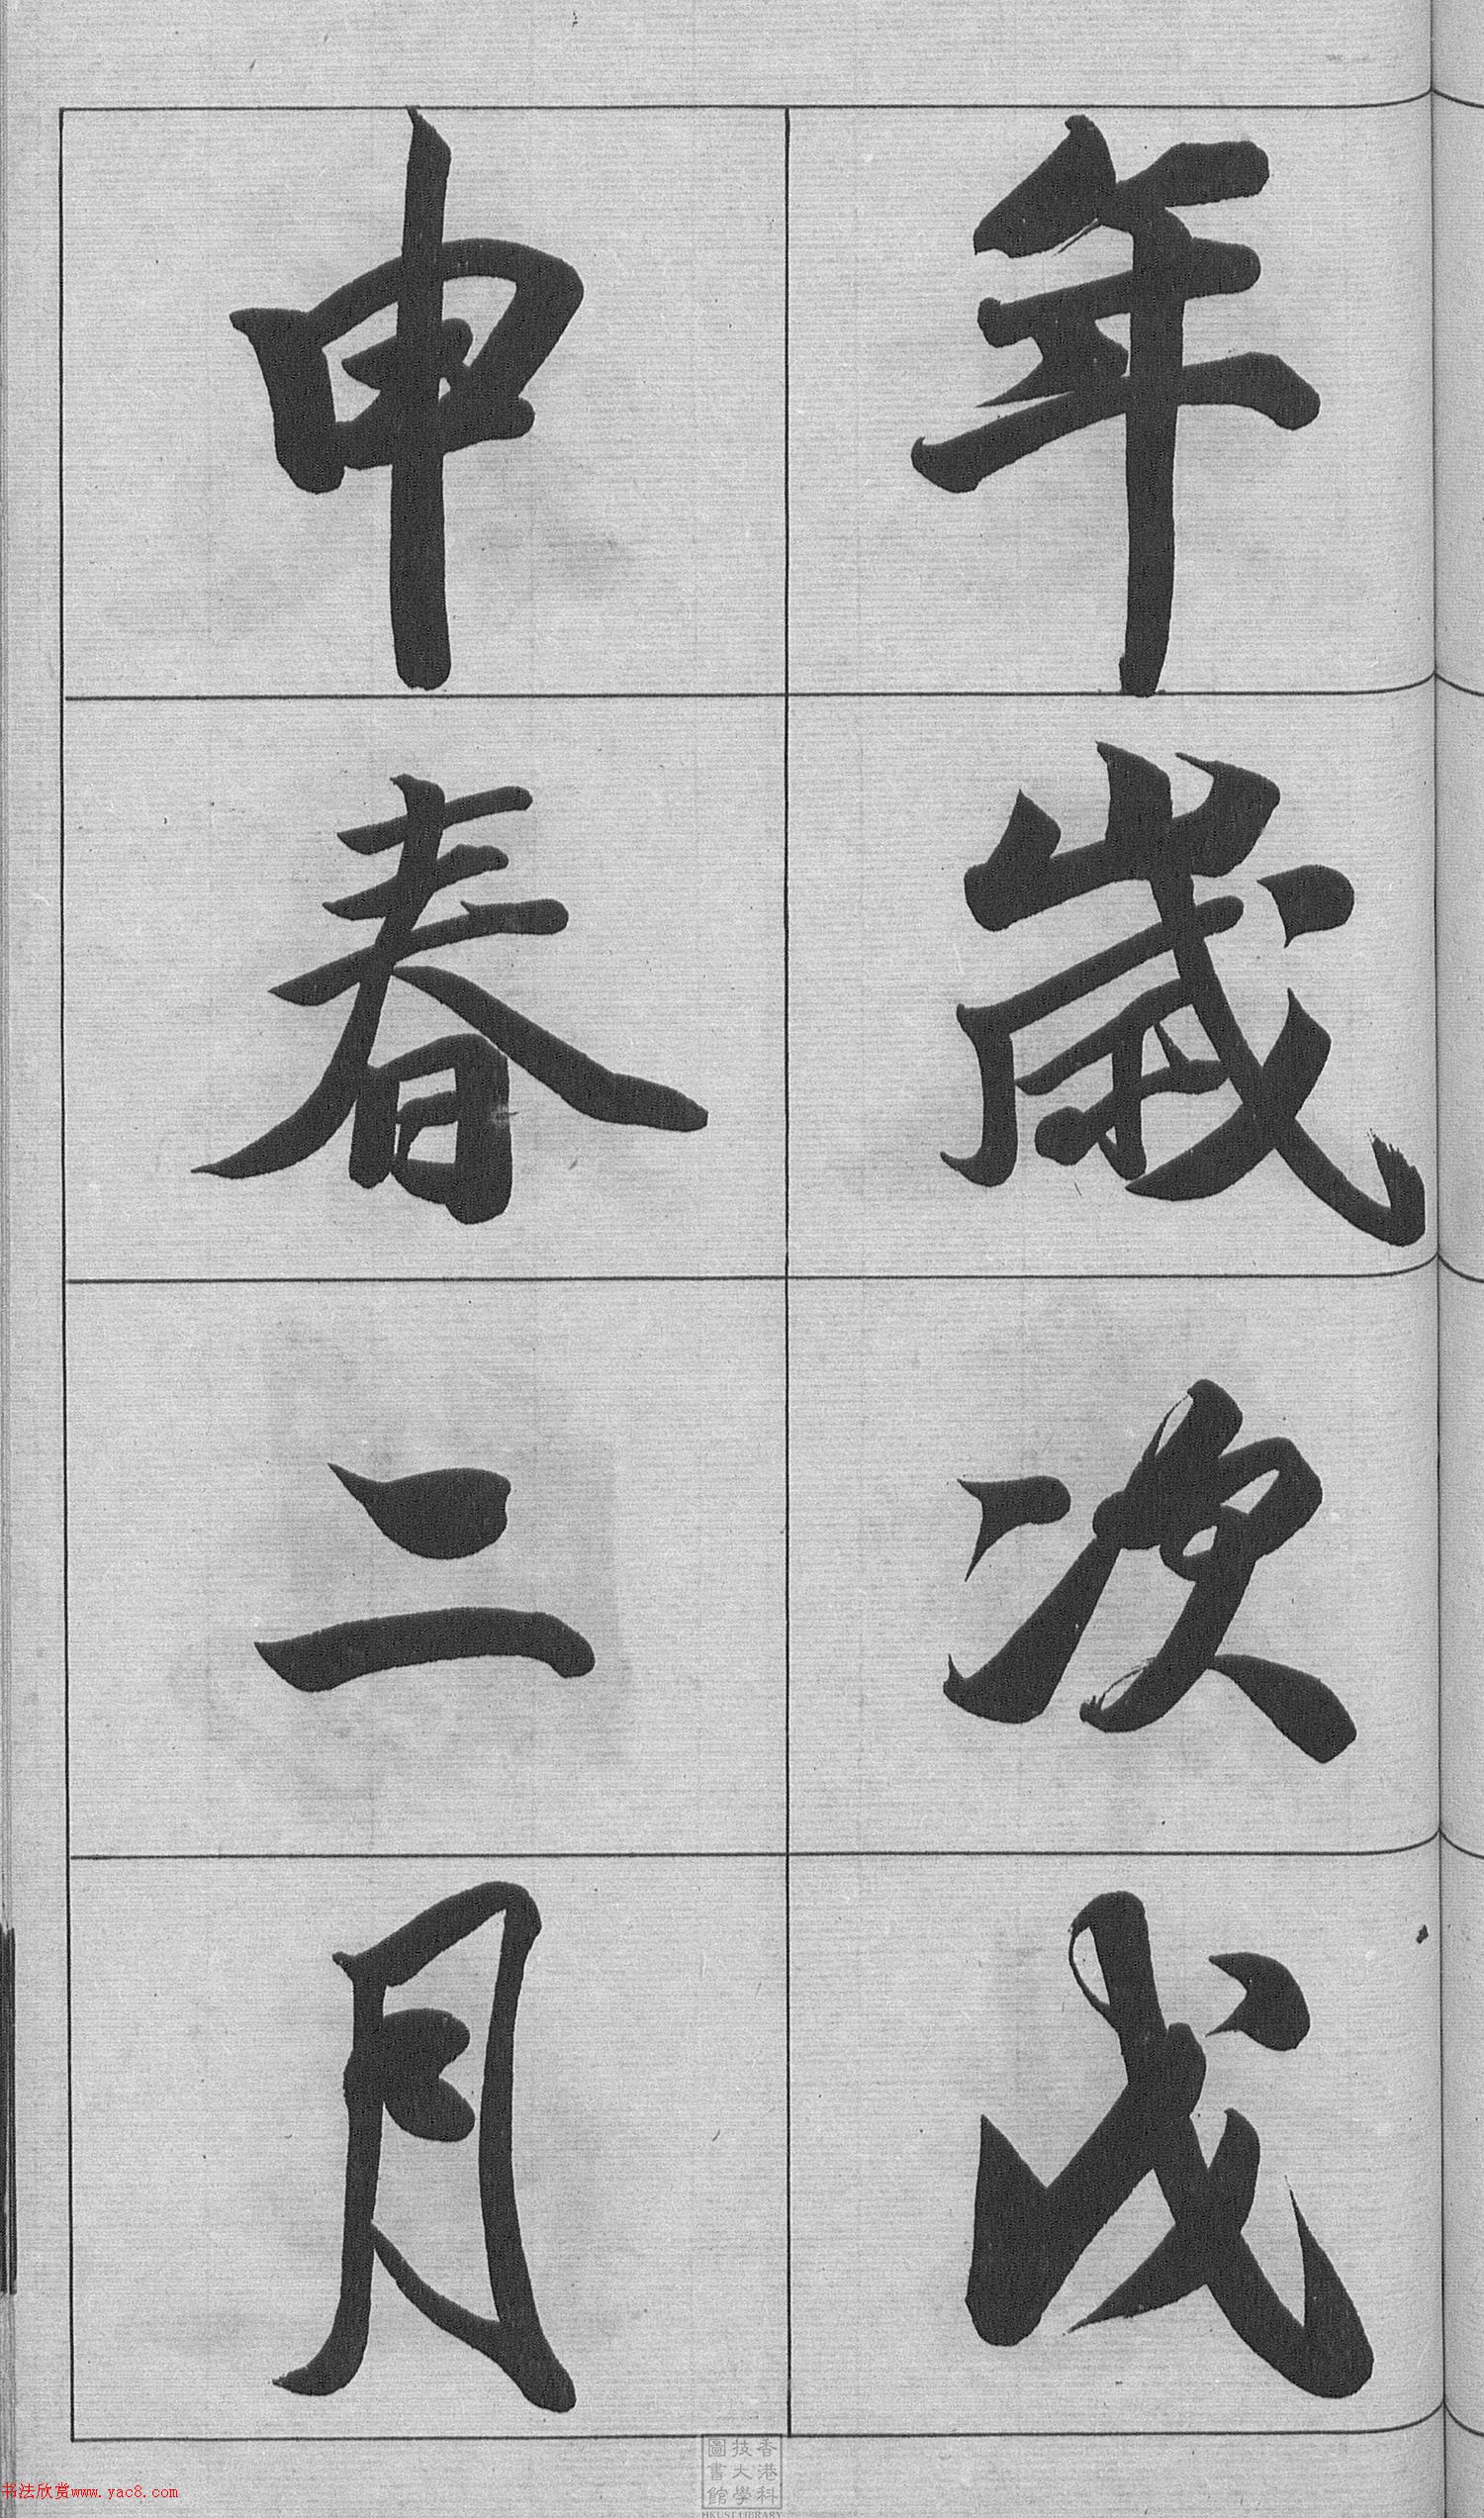 年歲次戊
申春二月
香港科
技大學
圖書館
HKUST LIBRARY
书法欣赏www.yac8.com